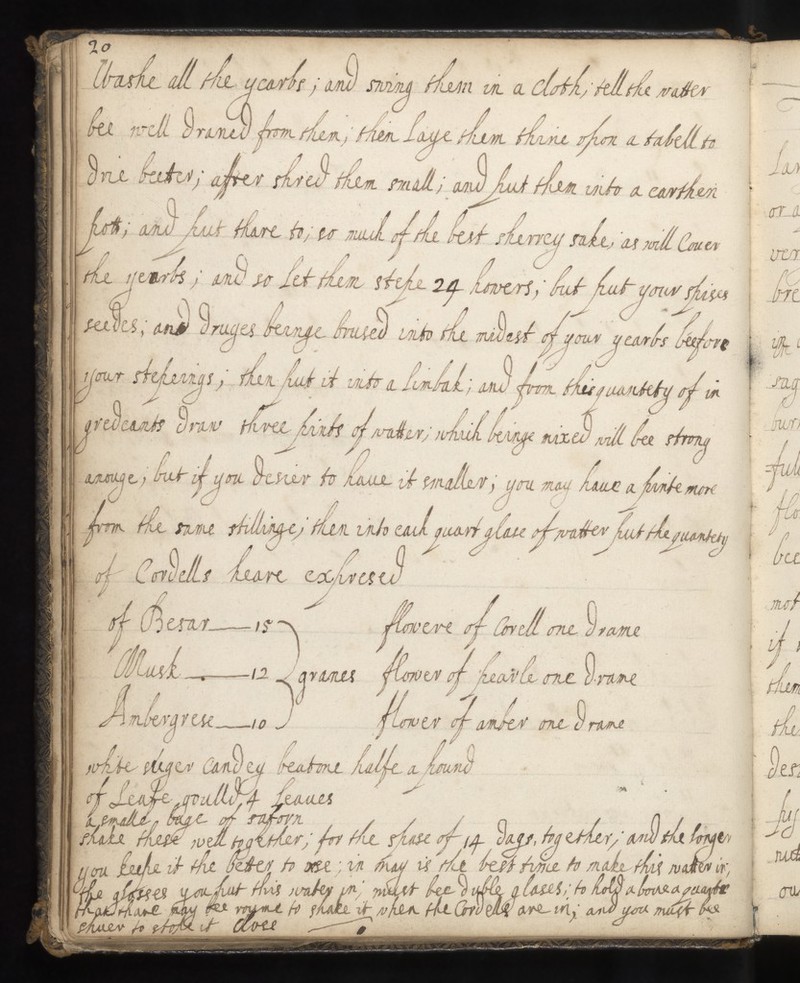 20
Washe all the yearbs; and swing them in a cloth; tell the watter
bee well draned from them; then Laye them thine opon a tabell to
drie beeter; after shred them small; and put them into a earthen
pott; and put thare to; so much of the best sherrey sake; as will Couer
the yearbs; and so Let them stepe 24 howers; but put your spises
seedes; and druges beinge brused into the midest of your yearbs beefore
your stepeings; then put it into a limbak; and from this quantety of in
gredeants draw three pints of watter; which beinge mixed will bee strong
anouge; but if you desier to haue it smaller; you may haue a pinte more
from the same stillinge; then into each quart glase of watter put the quantety
of Cordells heare expresed
of Besar — 15
Musk — 12 granes
Ambergrese — 10
flowere of Corell one drame
flower of pearle one drame
flower of amber one drame
white suger Candey beatone halfe a pound
of Leafe goulld 4 leaues
a smalle bage of saforn
shake these well together; for the spase of 14 days, together; and the longer
you keepe it the better to use; in may is the best time to make this watter in;
the glasses you put this water in; must bee duble glases; to hold aboue a quarte
that thare may bee royme to shake it when the Cordells are in; and you must bee
shuer to stope it Close